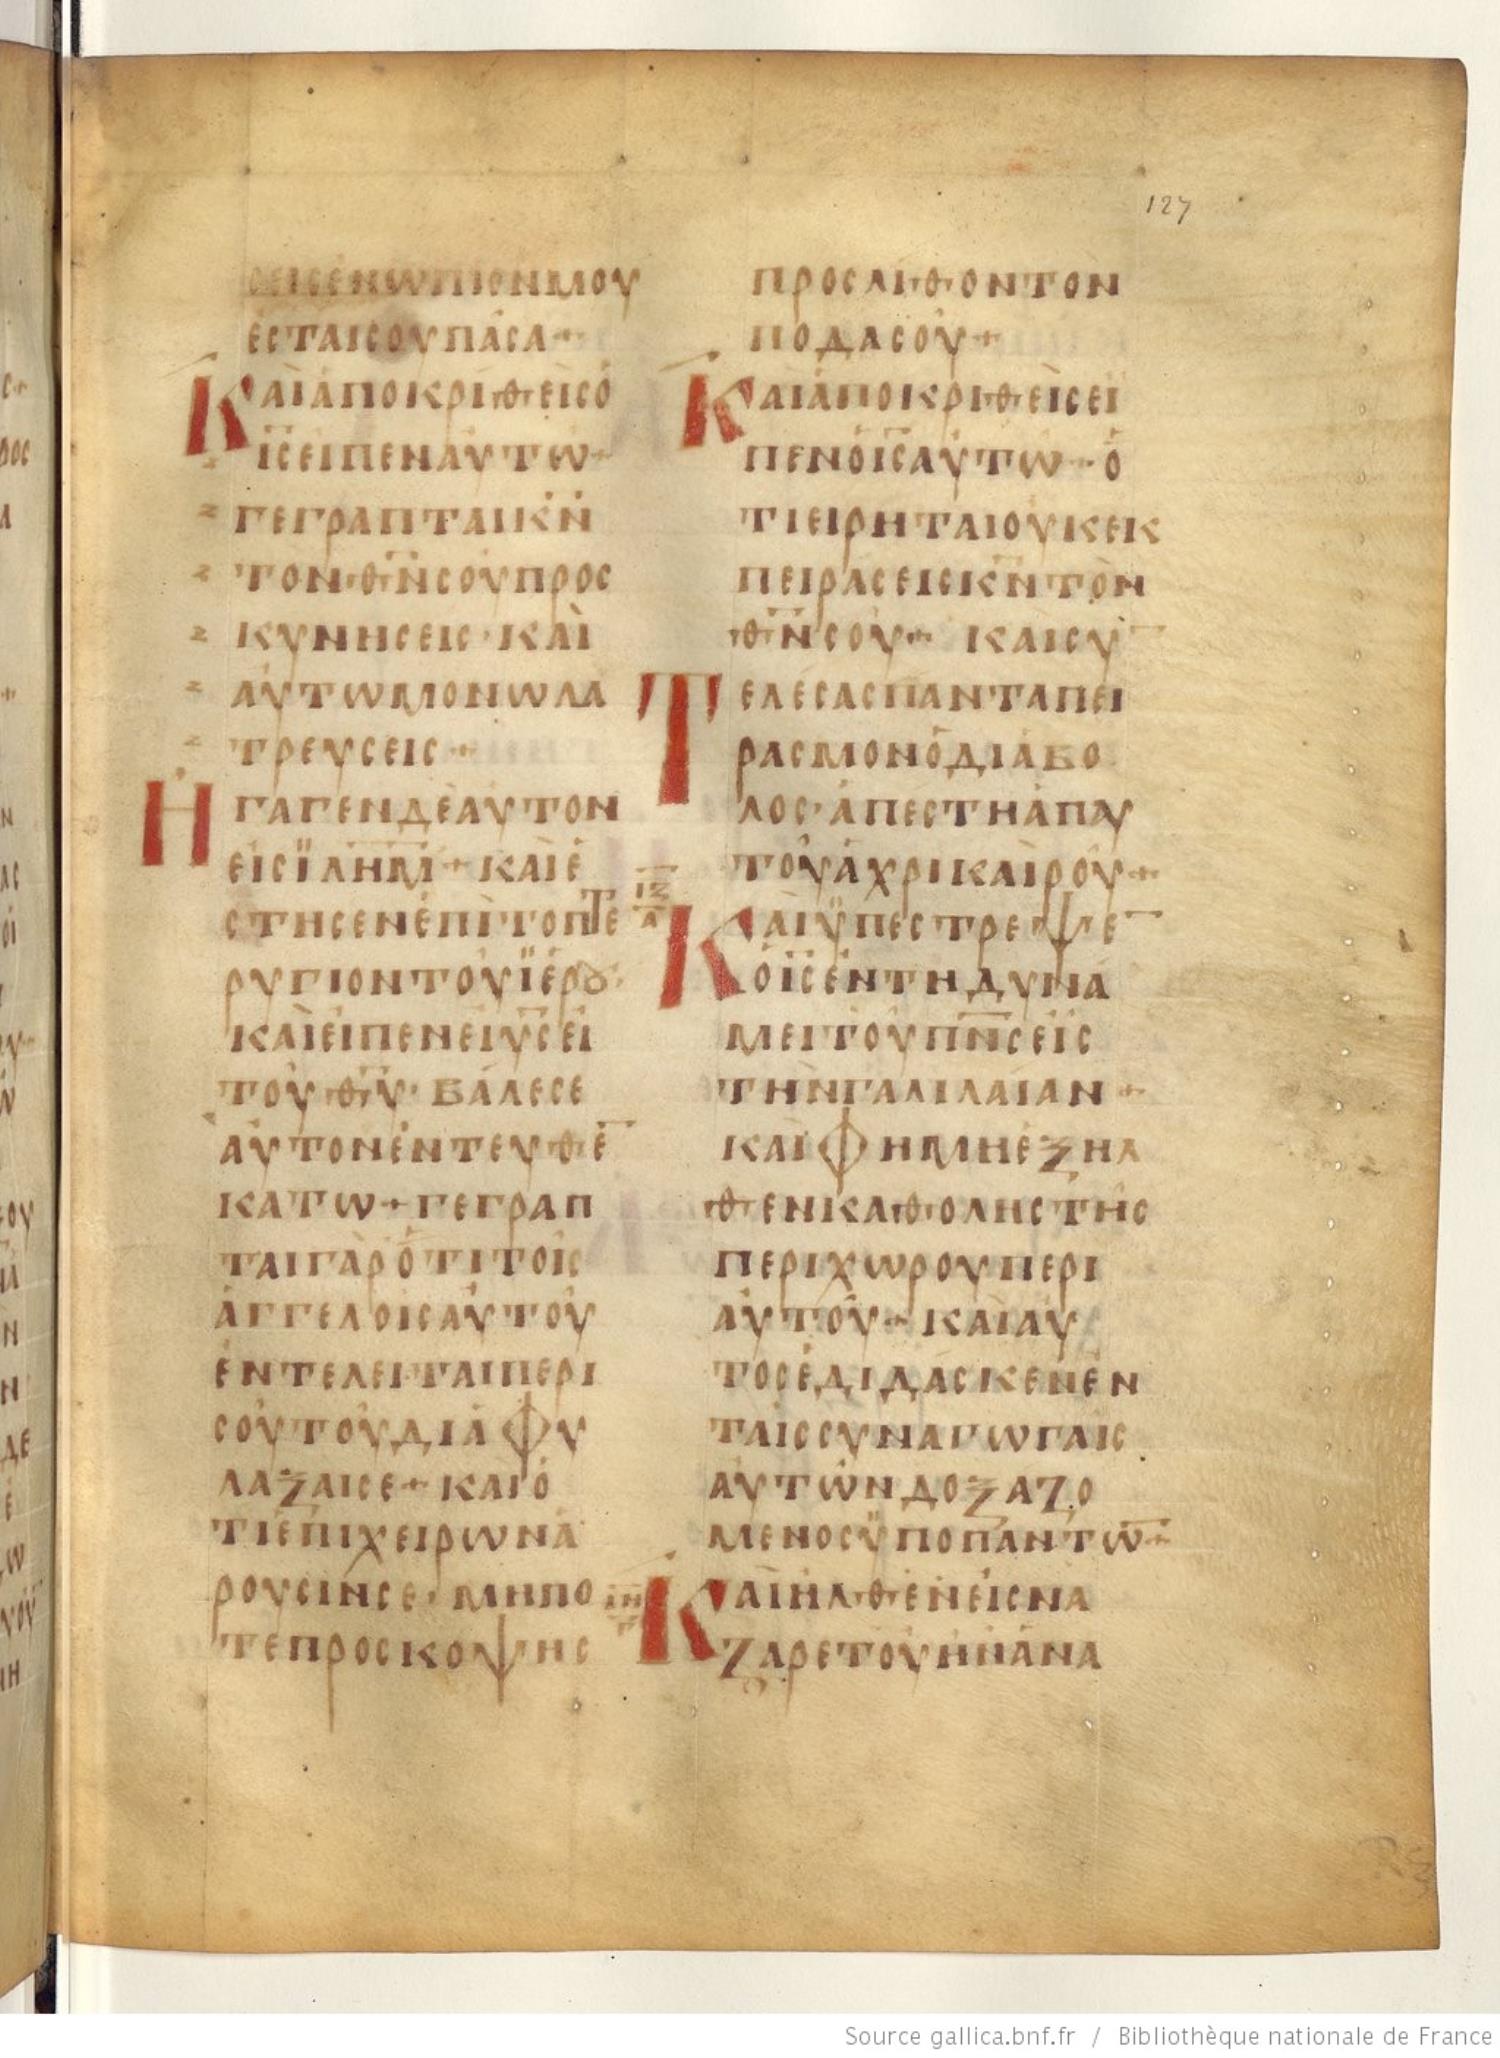 127
ϹΕΙϹΕΝΩΠΙΟΝΜΟΥ
ΕϹΤΑΙϹΟΥΠΑϹΑ+
ΚΑΙΑΠΟΚΡΙΘΕΙϹΟ
ΙϹΕΙΠΕΝΑΥΤΩ+
ΓΕΓΡΑΠΤΑΙΚΝ
ΤΟΝΘΝϹΟΥΠΡΟϹ
ΚΥΝΗϹΕΙϹ·ΚΑΙ
ΑΥΤΩΜΟΝΩΛΑ
ΤΡΕΥϹΕΙϹ+
ΗΓΑΓΕΝΔΕΑΥΤΟΝ
ΕΙϹΪΛΗΜ+ΚΑΙΕ
ϹΤΗϹΕΝΕΠΙΤΟΠΤΕ
ΡΥΓΙΟΝΤΟΥΪΕΡȣ·
ΚΑΙΕΙΠΕΝΕΙΥϹΕΙ
ΤΟΥΘΥ·ΒΑΛΕϹΕ
ΑΥΤΟΝΕΝΤΕΥΘΕ̅
ΚΑΤΩ+ΓΕΓΡΑΠ
ΤΑΙΓΑΡΟΤΙΤΟΙϹ
ΑΓΓΕΛΟΙϹΑΥΤΟΥ
ΕΝΤΕΛΕΙΤΑΙΠΕΡΙ
ϹΟΥΤΟΥΔΙΑΦΥ
ΛΑΞΑΙϹΕ+ΚΑΙΟ
ΤΙΕΠΙΧΕΙΡΩΝΑ
ΡΟΥϹΙΝϹΕ·ΜΗΠΟ
ΤΕΠΡΟϹΚΟΨΗϹ
ΠΡΟϹΛΙΘΟΝΤΟΝ
ΠΟΔΑϹΟΥ+
ΚΑΙΑΠΟΚΡΙΘΕΙϹΕΙ
ΠΕΝΟΙϹΑΥΤΩ+Ο
ΤΙΕΙΡΗΤΑΙΟΥΚΕΚ
ΠΕΙΡΑϹΕΙϹΚΝΤΟΝ
ΘΝϹΟΥ+ ΚΑΙϹΥ̅
ΤΕΛΕϹΑϹΠΑΝΤΑΠΕΙ
ΡΑϹΜΟΝΟΔΙΑΒΟ
ΛΟϹ·ΑΠΕϹΤΗΑΠΑΥ
ΤΟΥΑΧΡΙΚΑΙΡΟΥ+
ΙΖ
Α
ΚΑΙΫΠΕϹΤΡΕΨΕ̅
ΟΙϹΕΝΤΗΔΥΝΑ
ΜΕΙΤΟΥΠΝϹΕΙϹ
ΤΗΝΓΑΛΙΛΑΙΑΝ+
ΚΑΙΦΗΜΗΕΞΗΛ
ΘΕΝΚΑΘΟΛΗϹΤΗϹ
ΠΕΡΙΧΩΡΟΥΠΕΡΙ
ΑΥΤΟΥ+ΚΑΙΑΥ
ΤΟϹΕΔΙΔΑϹΚΕΝΕΝ
ΤΑΙϹϹΥΝΑΓΩΓΑΙϹ
ΑΥΤΩΝΔΟΞΑΖΟ
ΜΕΝΟϹΫΠΟΠΑΝΤΩ̅+
ΚΑΙΗΛΘΕΝΕΙϹΝΑ
ΖΑΡΕΤΟΥΗΝΑΝΑ
Source gallica.bnf.fr / Bibliothèque nationale de France